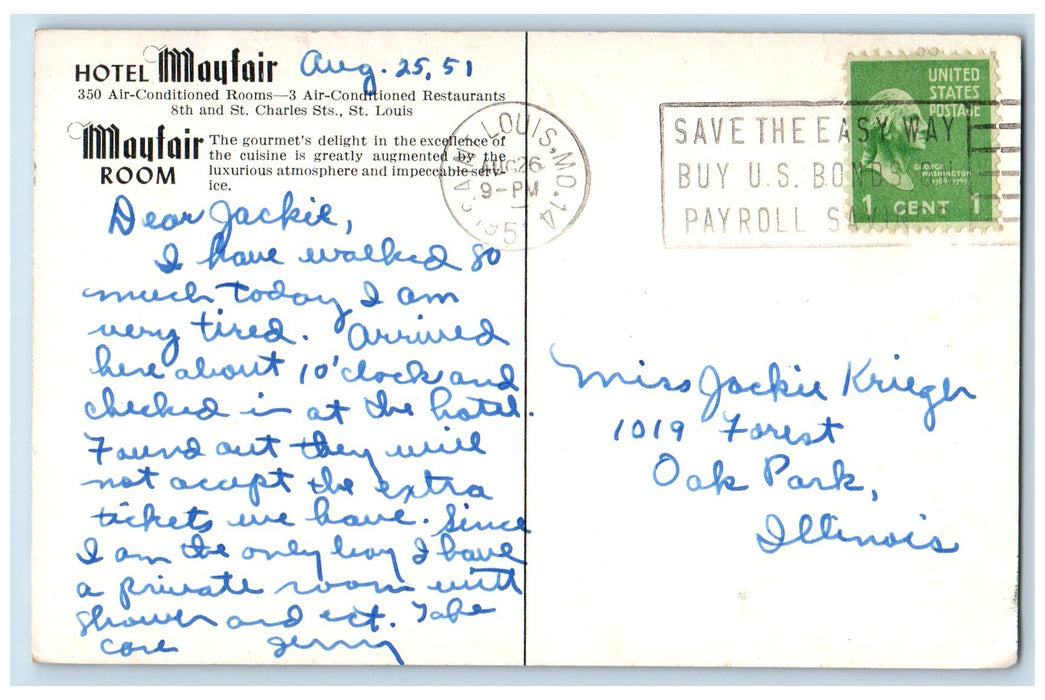 HOTEL Mayfair Aug. 25, 51
350 Air-Conditioned Rooms—3 Air-Conditioned Restaurants
8th and St. Charles Sts., St. Louis
Mayfair
ROOM
The gourmet's delight in the excellence of
the cuisine is greatly augmented by the
luxurious atmosphere and impeccable serv-
ice.
Dear Jackie,
I have walked so
much today I am
very tired. Arrived
here about 10 'clock and
checked in at the hotel.
Found out they will
not accept the extra
tickets we have. Since
I am the only boy I have
a private room with
shower and ect. Take
care Jerry
ST. LOUIS, MO. 14
AUG 26
9-PM
1951
SAVE THE EASY WAY
BUY U.S. BONDS
PAYROLL SAVINGS
UNITED
STATES
POSTAGE
GEORGE
WASHINGTON
1789 1797
1 CENT 1
Miss Jackie Krieger
1019 Forest
Oak Park,
Illinois